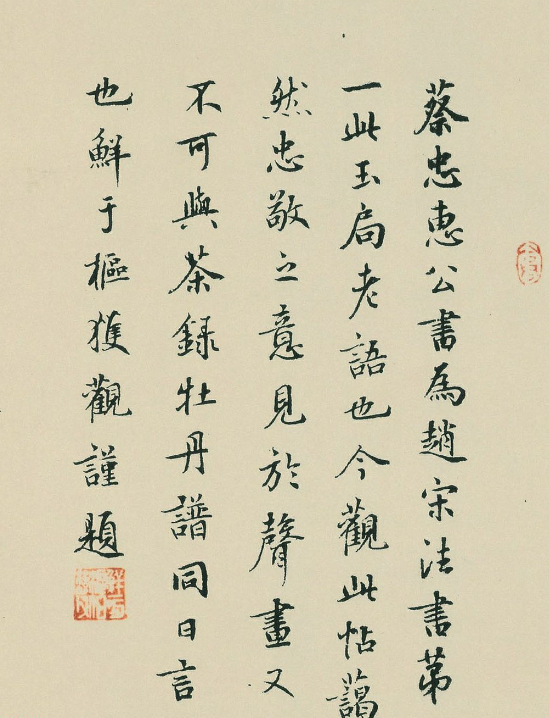 蔡忠惠公書為趙宋法書第
一此玉局老語也今觀此帖藹
然忠敬之意見於聲畫又
不可與茶録牡丹譜同日言
也鮮于樞獲觀謹題